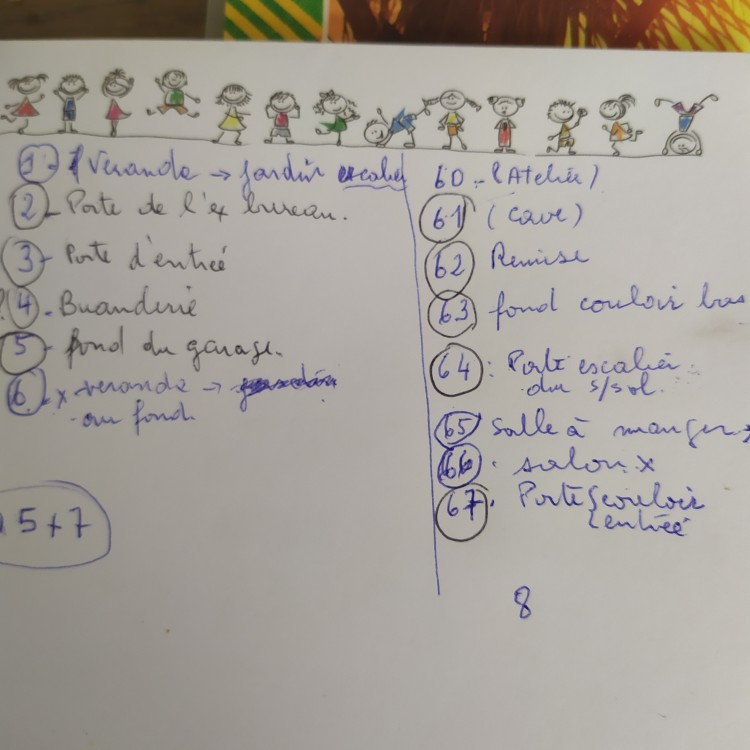 1. Veranda → Jardin escalier
2 - Porte de l'ex bureau.
3 - Porte d'entrée
4. Buanderie
5 - fond du garage.
6. x veranda →
au fond
5+7
60 - (Atelier)
61 (cave)
62 Remise
63 fond couloir bas
64 : Porte escalier
du s/sol.
65 Salle à manger x
66. salon x
67. Porte couloir
entrée
8